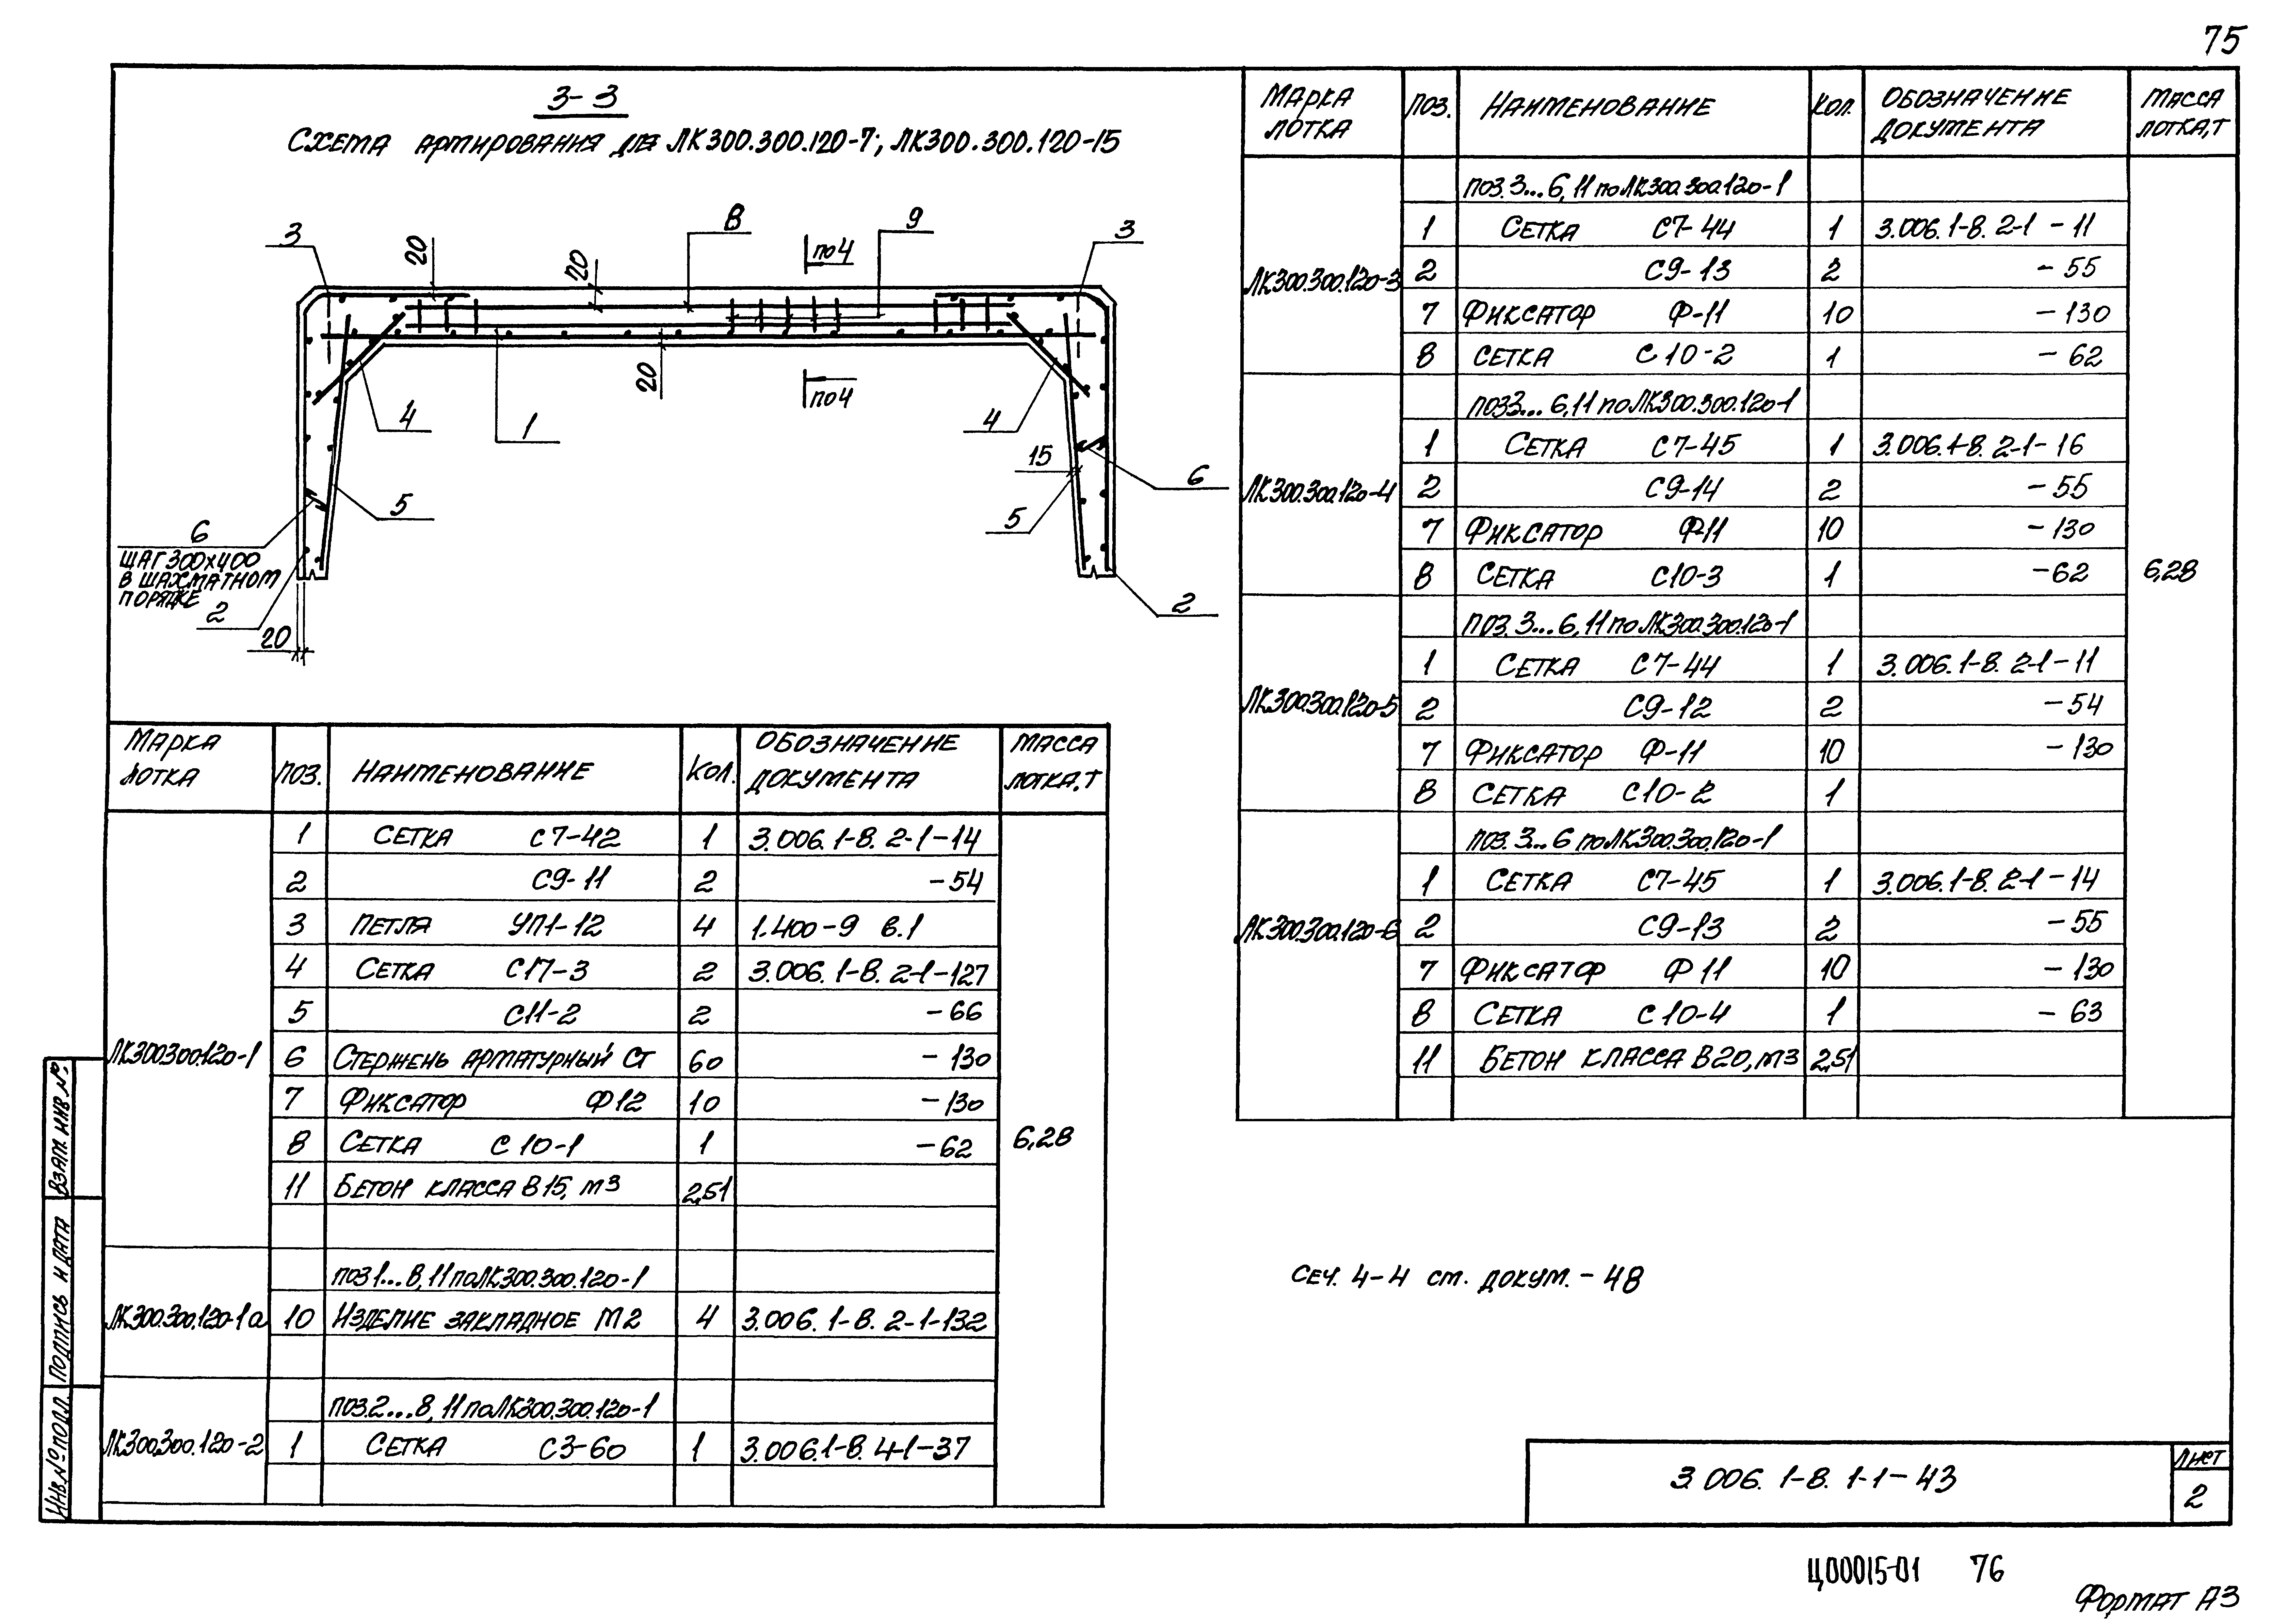 75
3-3
Схема армирования для ЛК300.300.120-7; ЛК300.300.120-15
3
20
20
8
по4
9
3
4
1
20
по4
4
15
6
5
5
6
шаг 300х400
в шахматном
порядке
2
20
2
Марка лотка | поз. | Наименование | Кол. | Обозначение документа | Масса лотка, т
ЛК300.300.120-1
1 Сетка С7-42 1 3.006.1-8. 2-1-14
2 С9-11 2 -54
3 Петля УП1-12 4 1.400-9 в.1
4 Сетка С17-3 2 3.006.1-8. 2-1-127
5 С11-2 2 -66
6 Стержень арматурный Ст 60 -130
7 Фиксатор Ф12 10 -130
8 Сетка С10-1 1 -62
11 Бетон класса В15, м3 2,51
6,28
поз 1...8, 11 по ЛК300.300.120-1
ЛК300.300.120-1а 10 Изделие закладное М2 4 3.006.1-8. 2-1-132
поз.2...8, 11 по ЛК300.300.120-1
ЛК300.300.120-2 1 Сетка С3-60 1 3.006.1-8. 4-1-37
Марка лотка | поз. | Наименование | Кол. | Обозначение документа | Масса лотка, т
поз. 3...6, 11 по ЛК300.300.120-1
1 Сетка С7-44 1 3.006.1-8. 2-1 -11
ЛК300.300.120-3 2 С9-13 2 -55
7 Фиксатор Ф-11 10 -130
8 Сетка С10-2 1 -62
поз3... 6,11 по ЛК300.300.120-1
1 Сетка С7-45 1 3.006.1-8. 2-1-16
ЛК300.300.120-4 2 С9-14 2 -55
7 Фиксатор Ф-11 10 -130
8 Сетка С10-3 1 -62
6,28
поз. 3...6, 11 по ЛК300.300.120-1
1 Сетка С7-44 1 3.006.1-8. 2-1-11
ЛК300.300.120-5 2 С9-12 2 -54
7 Фиксатор Ф-11 10 -130
8 Сетка С10-2 1
поз. 3...6 по ЛК300.300.120-1
1 Сетка С7-45 1 3.006.1-8. 2-1-14
ЛК300.300.120-6 2 С9-13 2 -55
7 Фиксатор Ф11 10 -130
8 Сетка С10-4 1 -63
11 Бетон класса В20, м3 2,51
Сеч. 4-4 см. докум. -48
Взам. инв. №
Подпись и дата
Инв. № подл.
3.006.1-8. 1-1-43
Лист
2
Ц00015-01 76
Формат А3